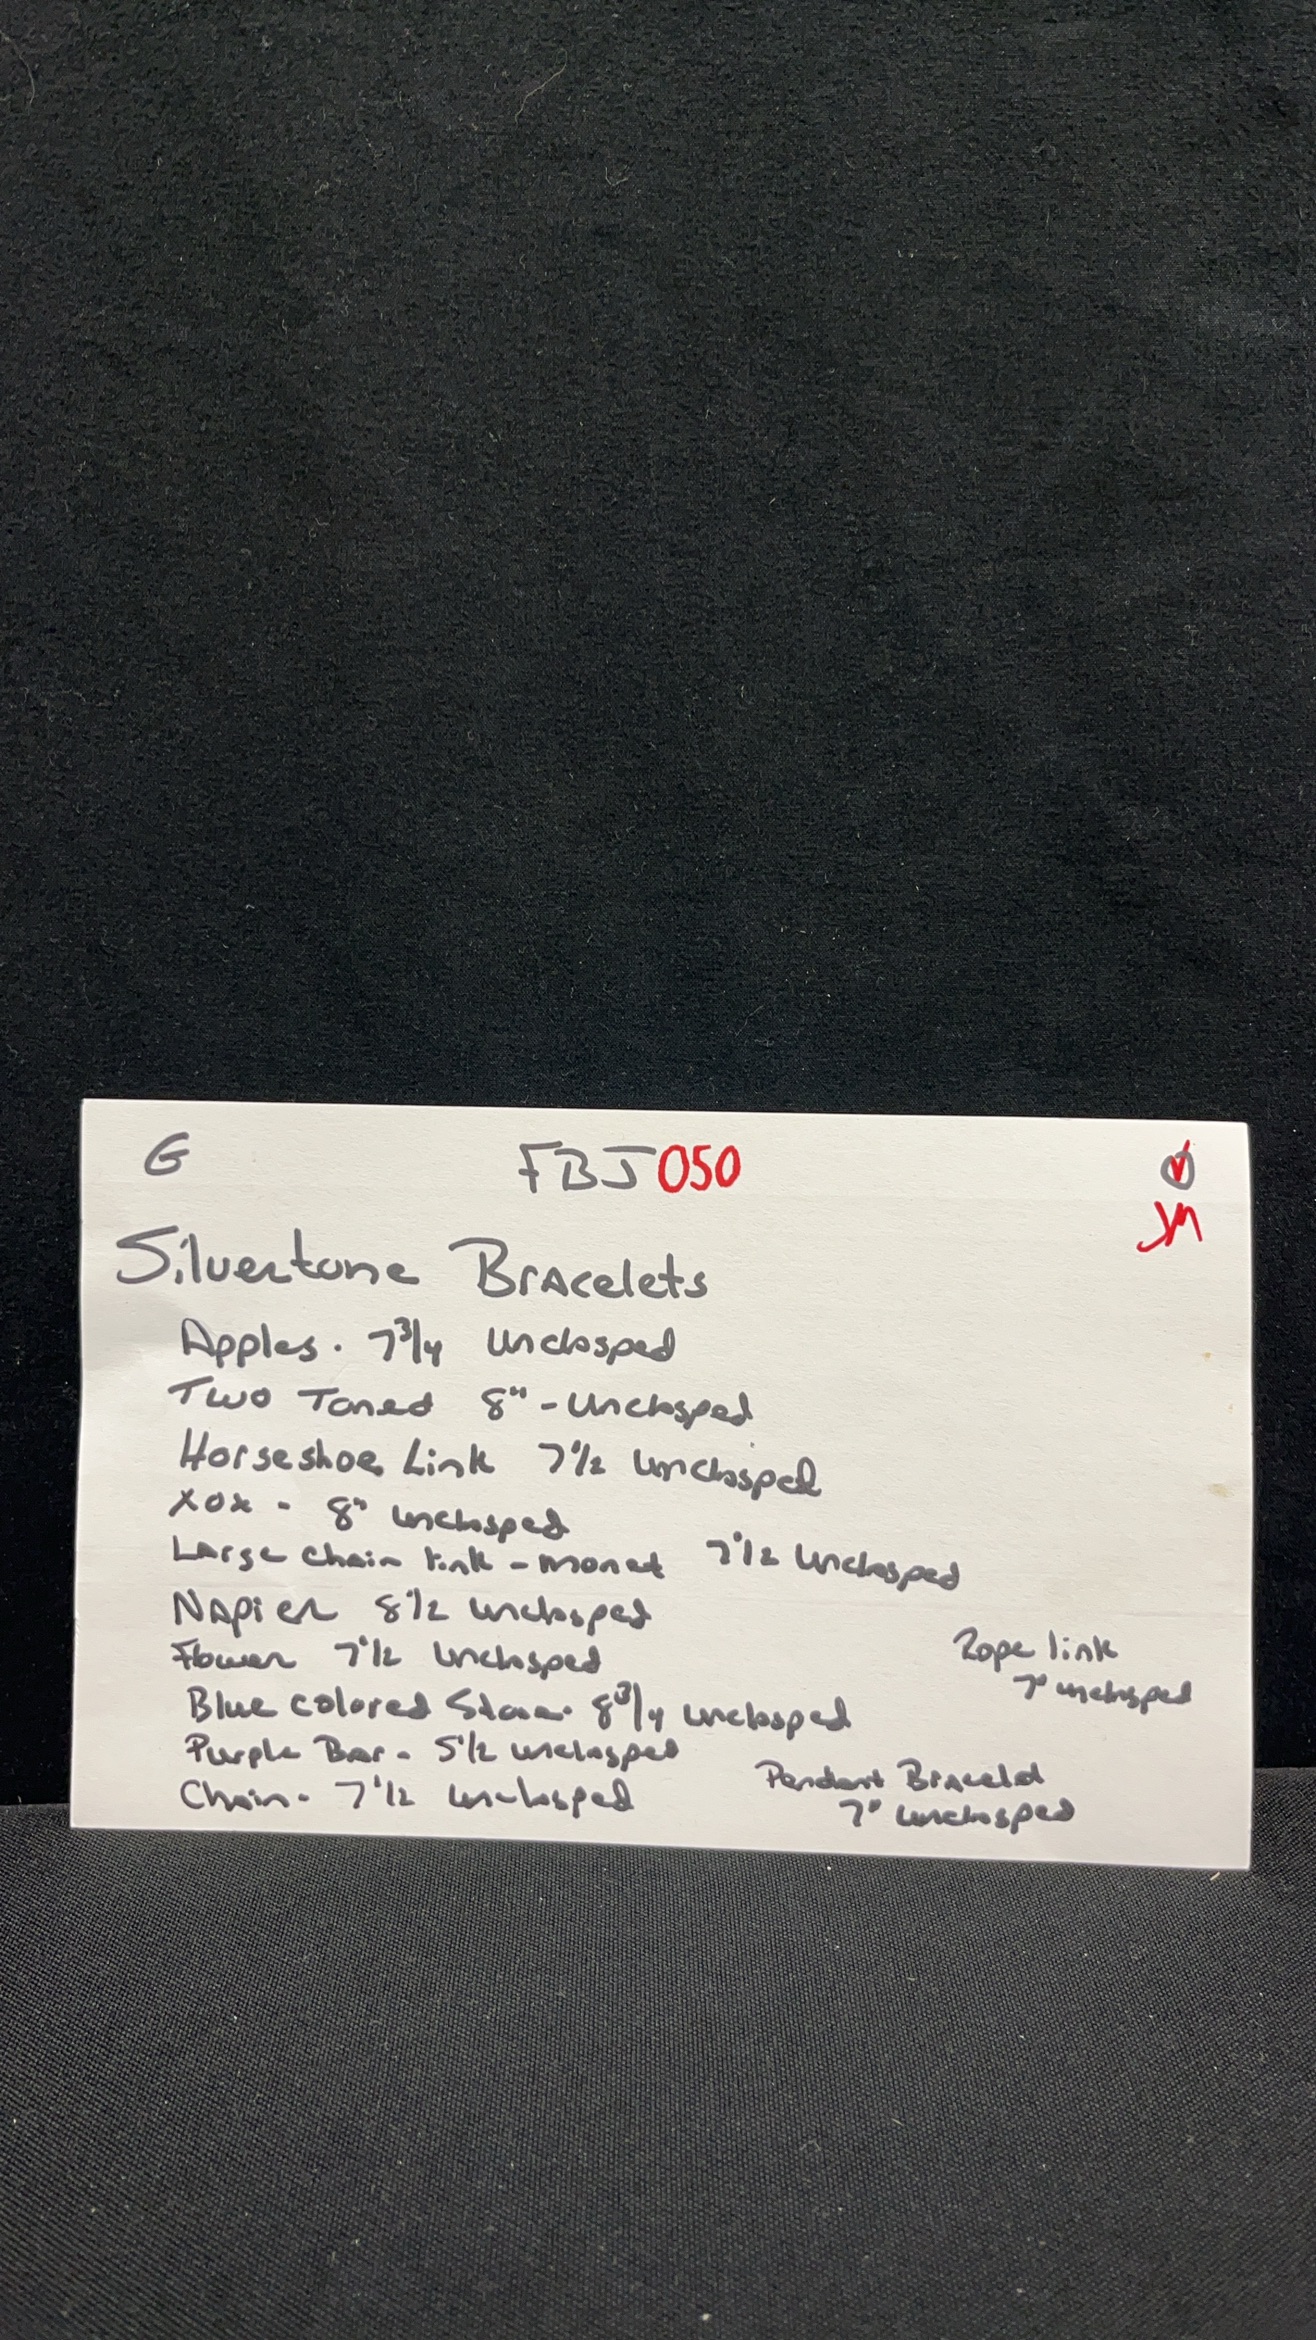 G FBJ050
Silvertone Bracelets
Apples. 7 3/4 unclasped
Two Toned 8" - unclasped
Horseshoe Link 7 1/2 unclasped
XOX - 8" unclasped
Large chain link - monet 7 1/2 unclasped
Napier 8 1/2 unclasped
Flower 7 1/2 unclasped
Blue colored Stone. 8 3/4 unclasped
Purple Bar - 5 1/2 unclasped
Chain - 7 1/2 unclasped
Rope link
7" unclasped
Pendant Bracelet
7" unclasped